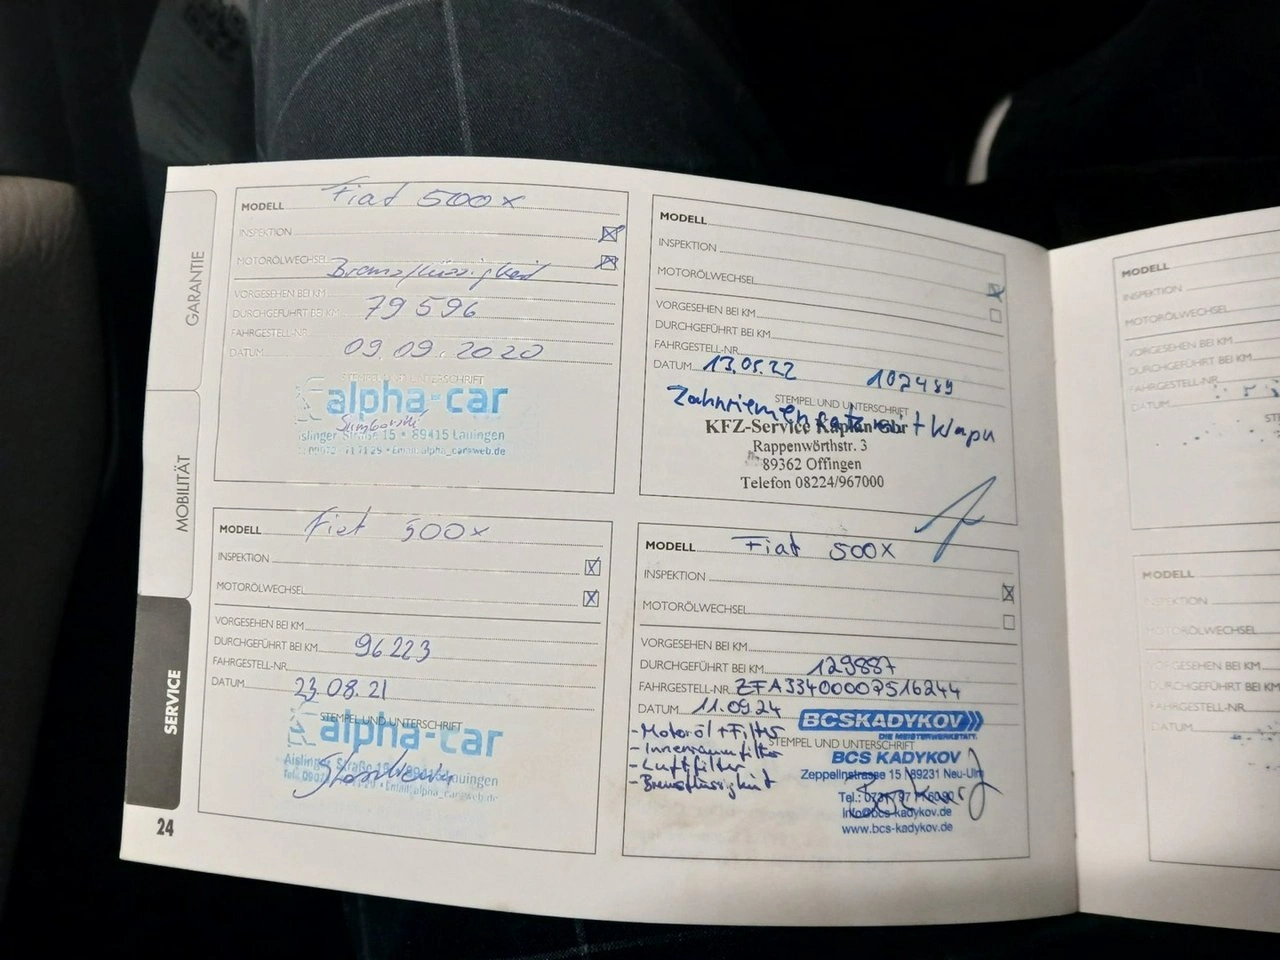 GARANTIE
MOBILITÄT
SERVICE
24
MODELL Fiat 500x
INSPEKTION
MOTORÖLWECHSEL
Bremsflüssigkeit
VORGESEHEN BEI KM
DURCHGEFÜHRT BEI KM 79596
FAHRGESTELL-NR.
DATUM 09.09.2020
STEMPEL UND UNTERSCHRIFT
alpha-car
islinger Straße 15 • 89415 Lauingen
MODELL Fiat 500x
INSPEKTION
MOTORÖLWECHSEL
VORGESEHEN BEI KM
DURCHGEFÜHRT BEI KM 96223
FAHRGESTELL-NR.
DATUM 23.08.21
STEMPEL UND UNTERSCHRIFT
alpha-car
Aislinger Straße 15 Lauingen
MODELL
INSPEKTION
MOTORÖLWECHSEL
VORGESEHEN BEI KM
DURCHGEFÜHRT BEI KM
FAHRGESTELL-NR.
DATUM 13.05.22 102489
STEMPEL UND UNTERSCHRIFT
Zahnriemensatz mit Wapu
KFZ-Service Kaplan Gbr
Rappenwörthstr. 3
89362 Offingen
Telefon 08224/967000
MODELL Fiat 500X
INSPEKTION
MOTORÖLWECHSEL
VORGESEHEN BEI KM
DURCHGEFÜHRT BEI KM 129887
FAHRGESTELL-NR. ZFA33400007516244
DATUM 11.09.24
- Motoröl + Filter
- Innenraumfilter
- Luftfilter
- Bremsflüssigkeit
STEMPEL UND UNTERSCHRIFT
BCSKADYKOV
DIE MEISTERWERKSTATT.
BCS KADYKOV
Zeppelinstrasse 15 89231 Neu-Ulm
Tel.:
info@bcs-kadykov.de
www.bcs-kadykov.de
MODELL
INSPEKTION
MOTORÖLWECHSEL
VORGESEHEN BEI KM
DURCHGEFÜHRT BEI KM
FAHRGESTELL-NR.
DATUM
MODELL
INSPEKTION
MOTORÖLWECHSEL
VORGESEHEN BEI KM
DURCHGEFÜHRT BEI KM
FAHRGESTELL-NR.
DATUM